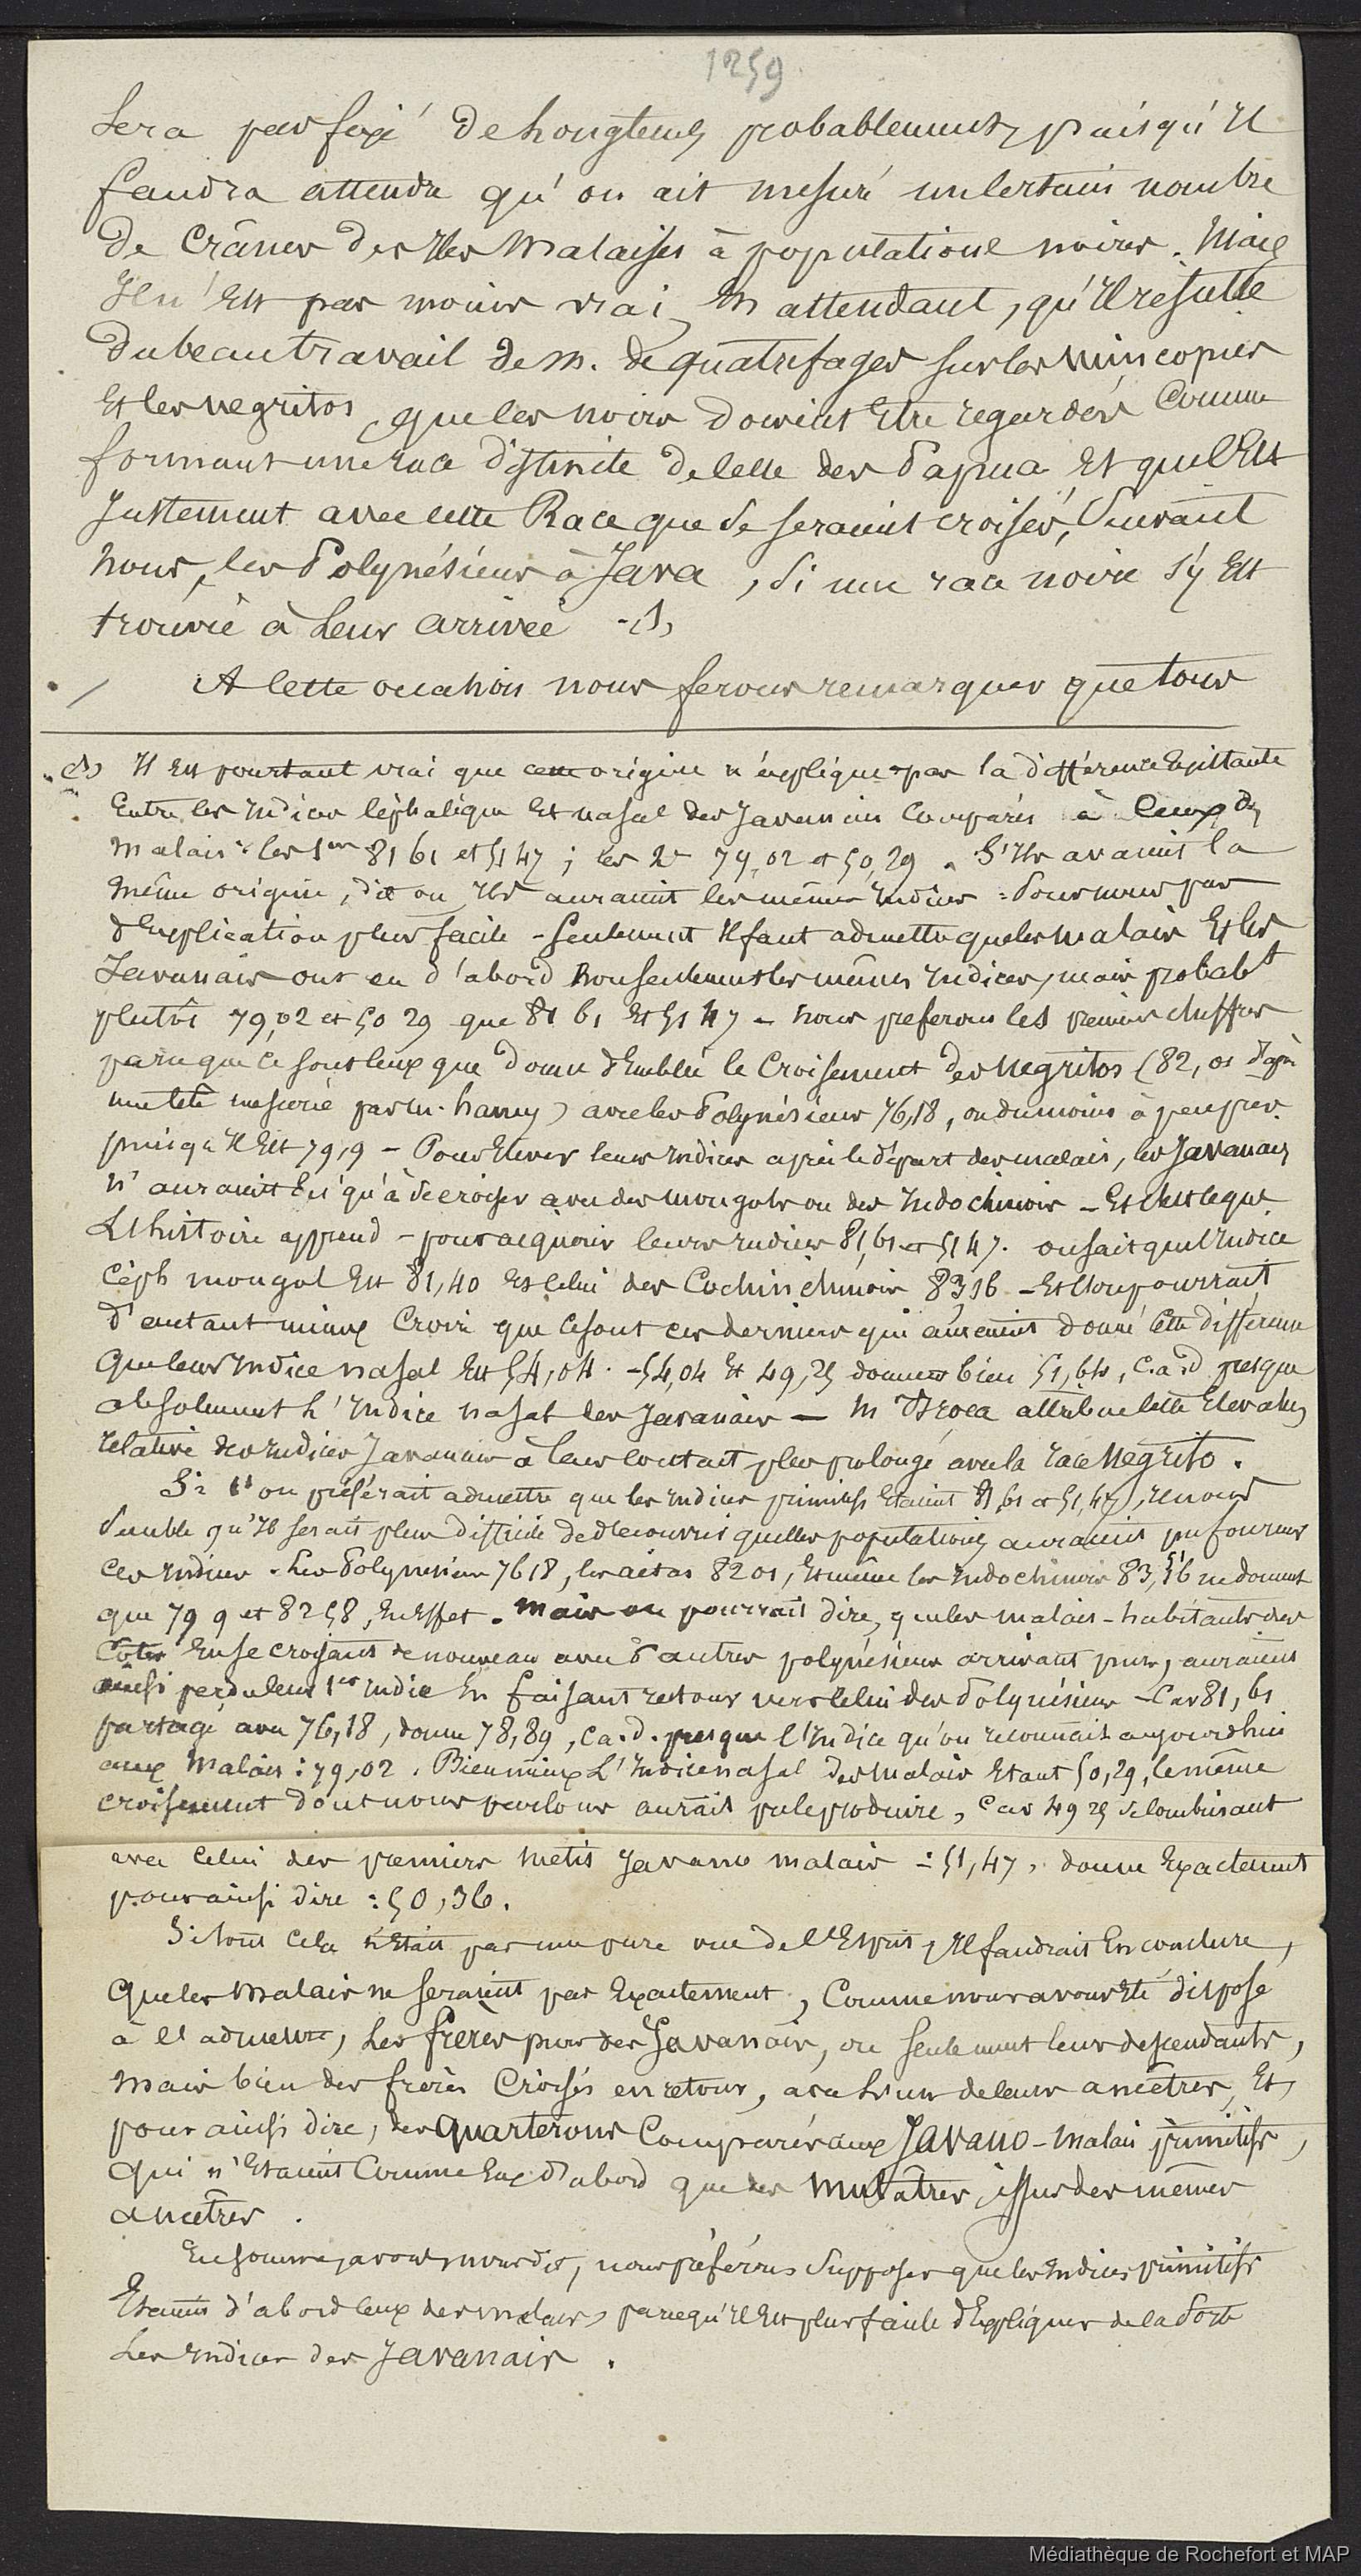 1259
Sera pas fixé de longtems probablement, puisqu'il
faudra attendre qu'on ait mesuré un certain nombre
de Crânes des Iles Malaises à populations noires. Mais
Il n'est pas moins vrai, en attendant, qu'il résulte
du beau travail de m. de quatrefages sur les mincopies
Et les negritos, que les noirs doivent Etre regardés Comme
formant une race distincte de celle des Papua Et que c'Est
Justement avec cette Race que se seraient croisés, Suivant
nous, les Polynésiens à Java, si une race noire s'y Est
trouvée à Leur arrivée - (1)
A cette occasion nous ferons remarquer que tous
(1) Il Est pourtant vrai que cette origine n'explique pas la différence Existante
Entre les Indices Céphalique Et nasal des Javanais Comparés à Ceux des
Malais : les 1ers 81 61 et 51 47 ; les 2e 79,02 et 50,29. S'Ils avaient la
même origine, dit on, Ils auraient les mêmes Indices : Pour nous pas
d'Explication plus facile - Seulement Il faut admettre que les malais Et les
Javanais ont eu d'abord non seulement les mêmes Indices, mais probabt
plutôt 79,02 et 50 29 que 81 61 Et 51 47 - Nous préférons les premiers chiffres
parceque ce sont ceux que donne d'Emblée le Croisement des Negritos (82,01 d'après
une tête mesurée par m. hamy) avec les Polynésiens 76,18, ou du moins à peu près
puisqu'Il Est 79,9 - Pour Elever leurs Indices après le départ des malais, les Javanais
n'auraient Eu qu'à se croiser avec des mongols ou des Indochinois - Et c'est ce que
L'histoire apprend - pour acquérir leurs Indices 81,61 et 51 47. on sait que l'Indice
Céph mongol Est 81,40 Et celui des Cochinchinois 83,16 - Et l'on pourrait
d'autant mieux Croire que ce sont ces derniers qui auraient donné cette différence
que leur Indice nasal Est 54,04. - 54,04 Et 49,25 donnent bien 51,64, c.a.d presque
absolument L'Indice nasal des Javanais - M Broca attribue cette Elevation
relative des Indices Javanais à leur contact plus prolongé avec la race Negrito.
Si l'on préférait admettre que les Indices primitifs Etaient 81 61 et 51,47, Il nous
Semble qu'Il serait plus difficile de découvrir quelles populations auraient pu fournir
ces Indices. Les Polynésiens 76 18, les aetas 82 01, Et même les Indochinois 83,16 ne donnent
que 79 9 et 82 58, En Effet. Mais on pourrait dire, que les malais - habitants des
Côtes En se croisant de nouveau avec d'autres polynésiens arrivant purs, auraient
ainsi perdu leur 1er Indice En faisant retour vers celui des Polynésiens - Car 81,61
partagé avec 76,18, donne 78,89, c.a.d. presque l'Indice qu'on reconnait aujourd'hui
aux Malais : 79,02. Bien mieux L'Indice nasal des malais Etant 50,29, le même
croisement dont nous parlons aurait pu le produire, car 49 25 se combinant
avec celui des premiers metis Javano malais = 51,47, donne Exactement
pour ainsi dire : 50,36.
Si tout cela n'Etait pas une pure vue de l'Esprit, Il faudrait En conclure,
que les malais ne seraient pas Exactement, Comme nous avons Eté disposé
à l'admettre, Les frères purs des Javanais, ou seulement leurs descendants,
Mais bien des frères Croisés en retour, avec l'un de leurs ancêtres, Et,
pour ainsi dire, des quarterons Comparés aux Javano-Malais primitifs,
qui n'Etaient Comme Eux d'abord que des mulâtres, issus des mêmes
ancêtres.
En somme, avons nous dit, nous préférons supposer que les Indices primitifs
Etaient d'abord ceux des malais, parcequ'Il Est plus facile d'Expliquer de la Sorte
Les Indices des Javanais.
Médiathèque de Rochefort et MAP